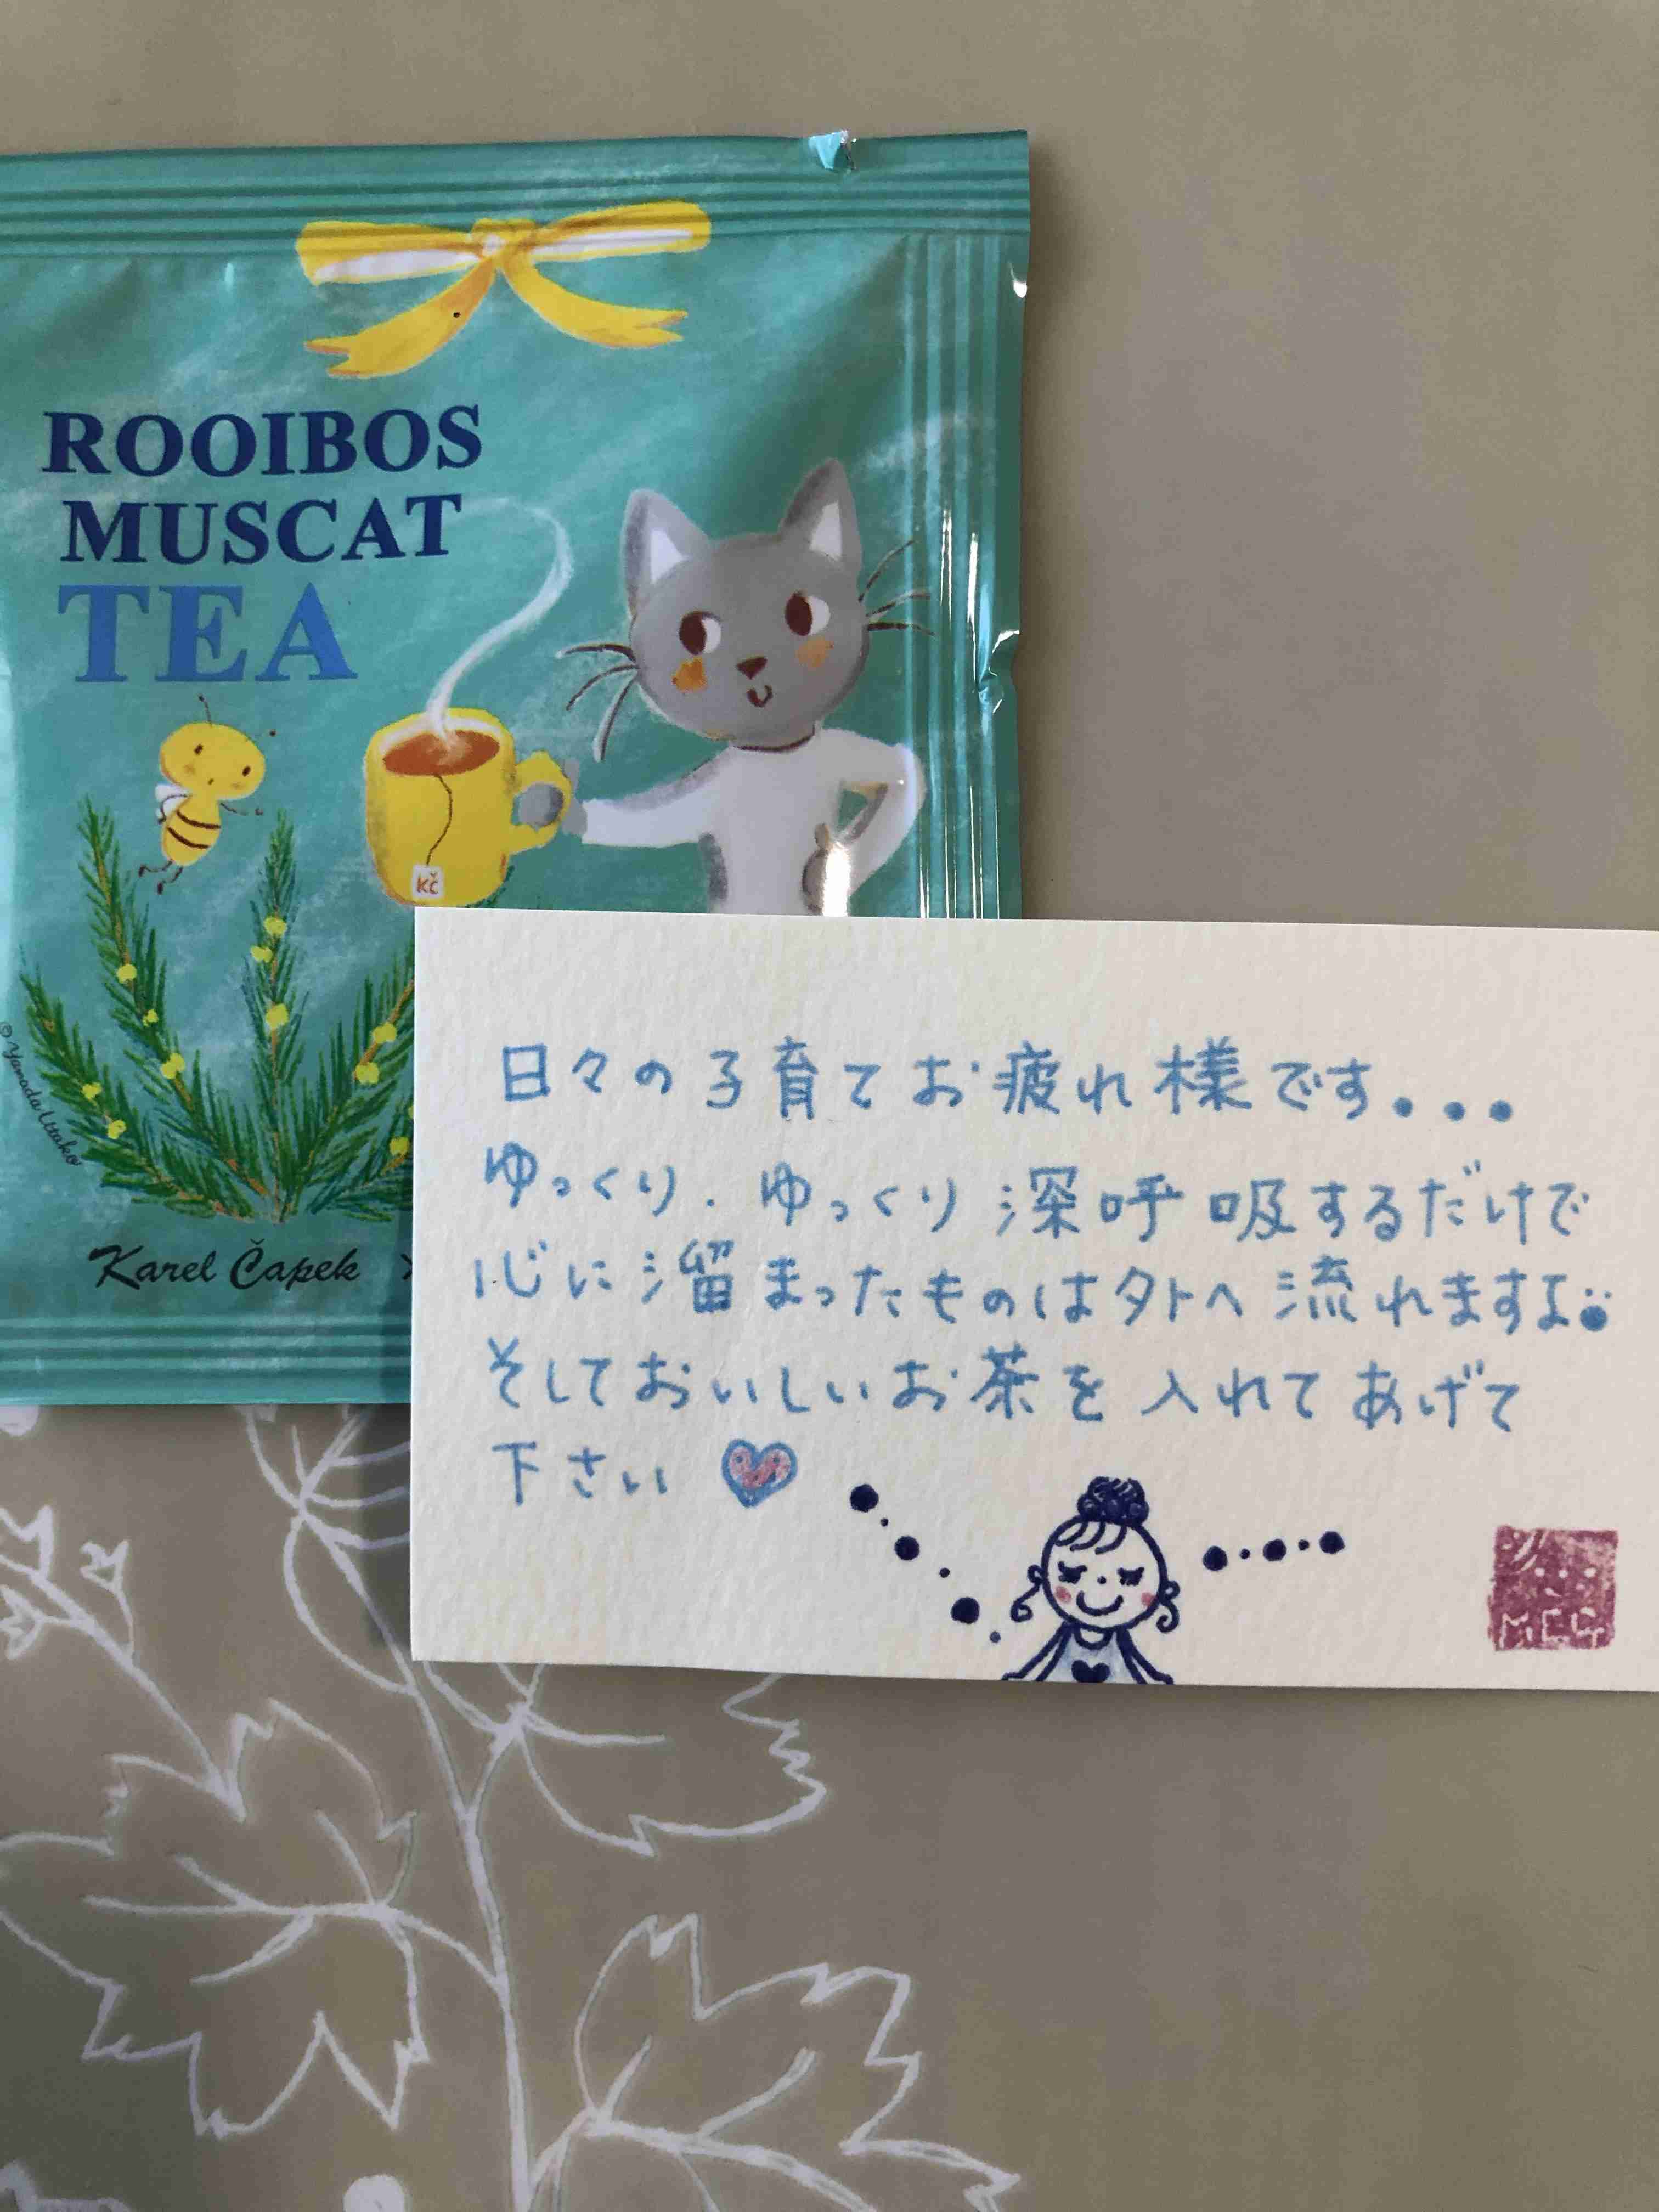 ROOIBOS
MUSCAT
TEA
KČ
© Yamada Utako
Karel Čapek
日々の子育てお疲れ様です...
ゆっくり.ゆっくり深呼吸するだけで
心に溜まったものは外へ流れますよ
そしておいしいお茶を入れてあげて
下さい
MEG